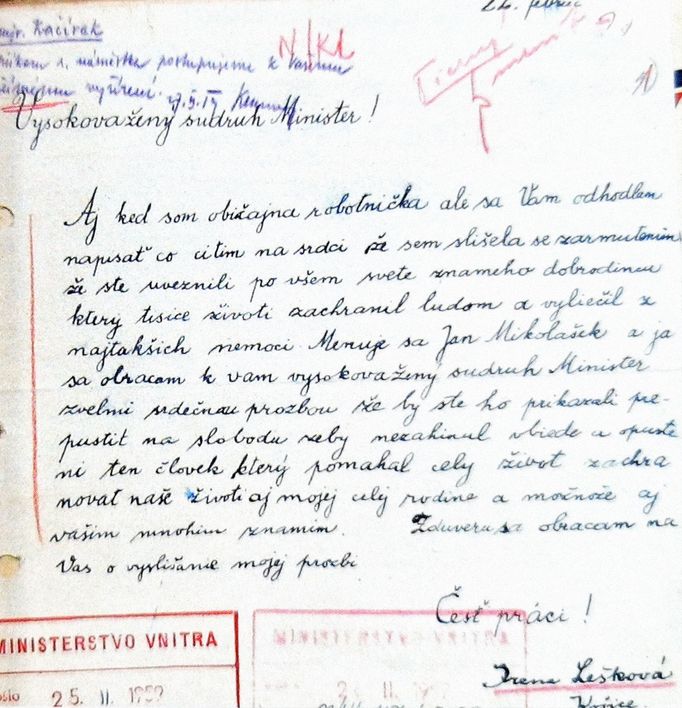 22. február
Kacírek
námestka postupujeme k Vašemu
vyřízení. N/KL
Vysokovažený sudruh Minister!
Aj ked som obižajna robotnička ale sa Vam odhodlam
napisať co citim na srdci že sem slišela se zarmutenim
že ste uveznili po všem svete znameho dobrodincu
ktery tisice životi zachranil ludom a vyliečil z
najtakšich nemoci. Menuje sa Jan Mikolašek a ja
sa obracam k vam vysokovažený sudruh Minister
zvelmi srdečnau prozbou že by ste ho prikazali pre-
pustit na slobodu zeby nezahinul vbiede a opuste
ni ten človek který pomahal cely život zachra
novat naše životi aj mojej celej rodine a možnože aj
vašim mnohim znamim. Zduveru sa obracam na
Vas o vyslišanie mojej prozbi
Česť práci!
MINISTERSTVO VNITRA
MINISTERSTVO VNITRA
Irena Lešková
25. II. 1959
Košice